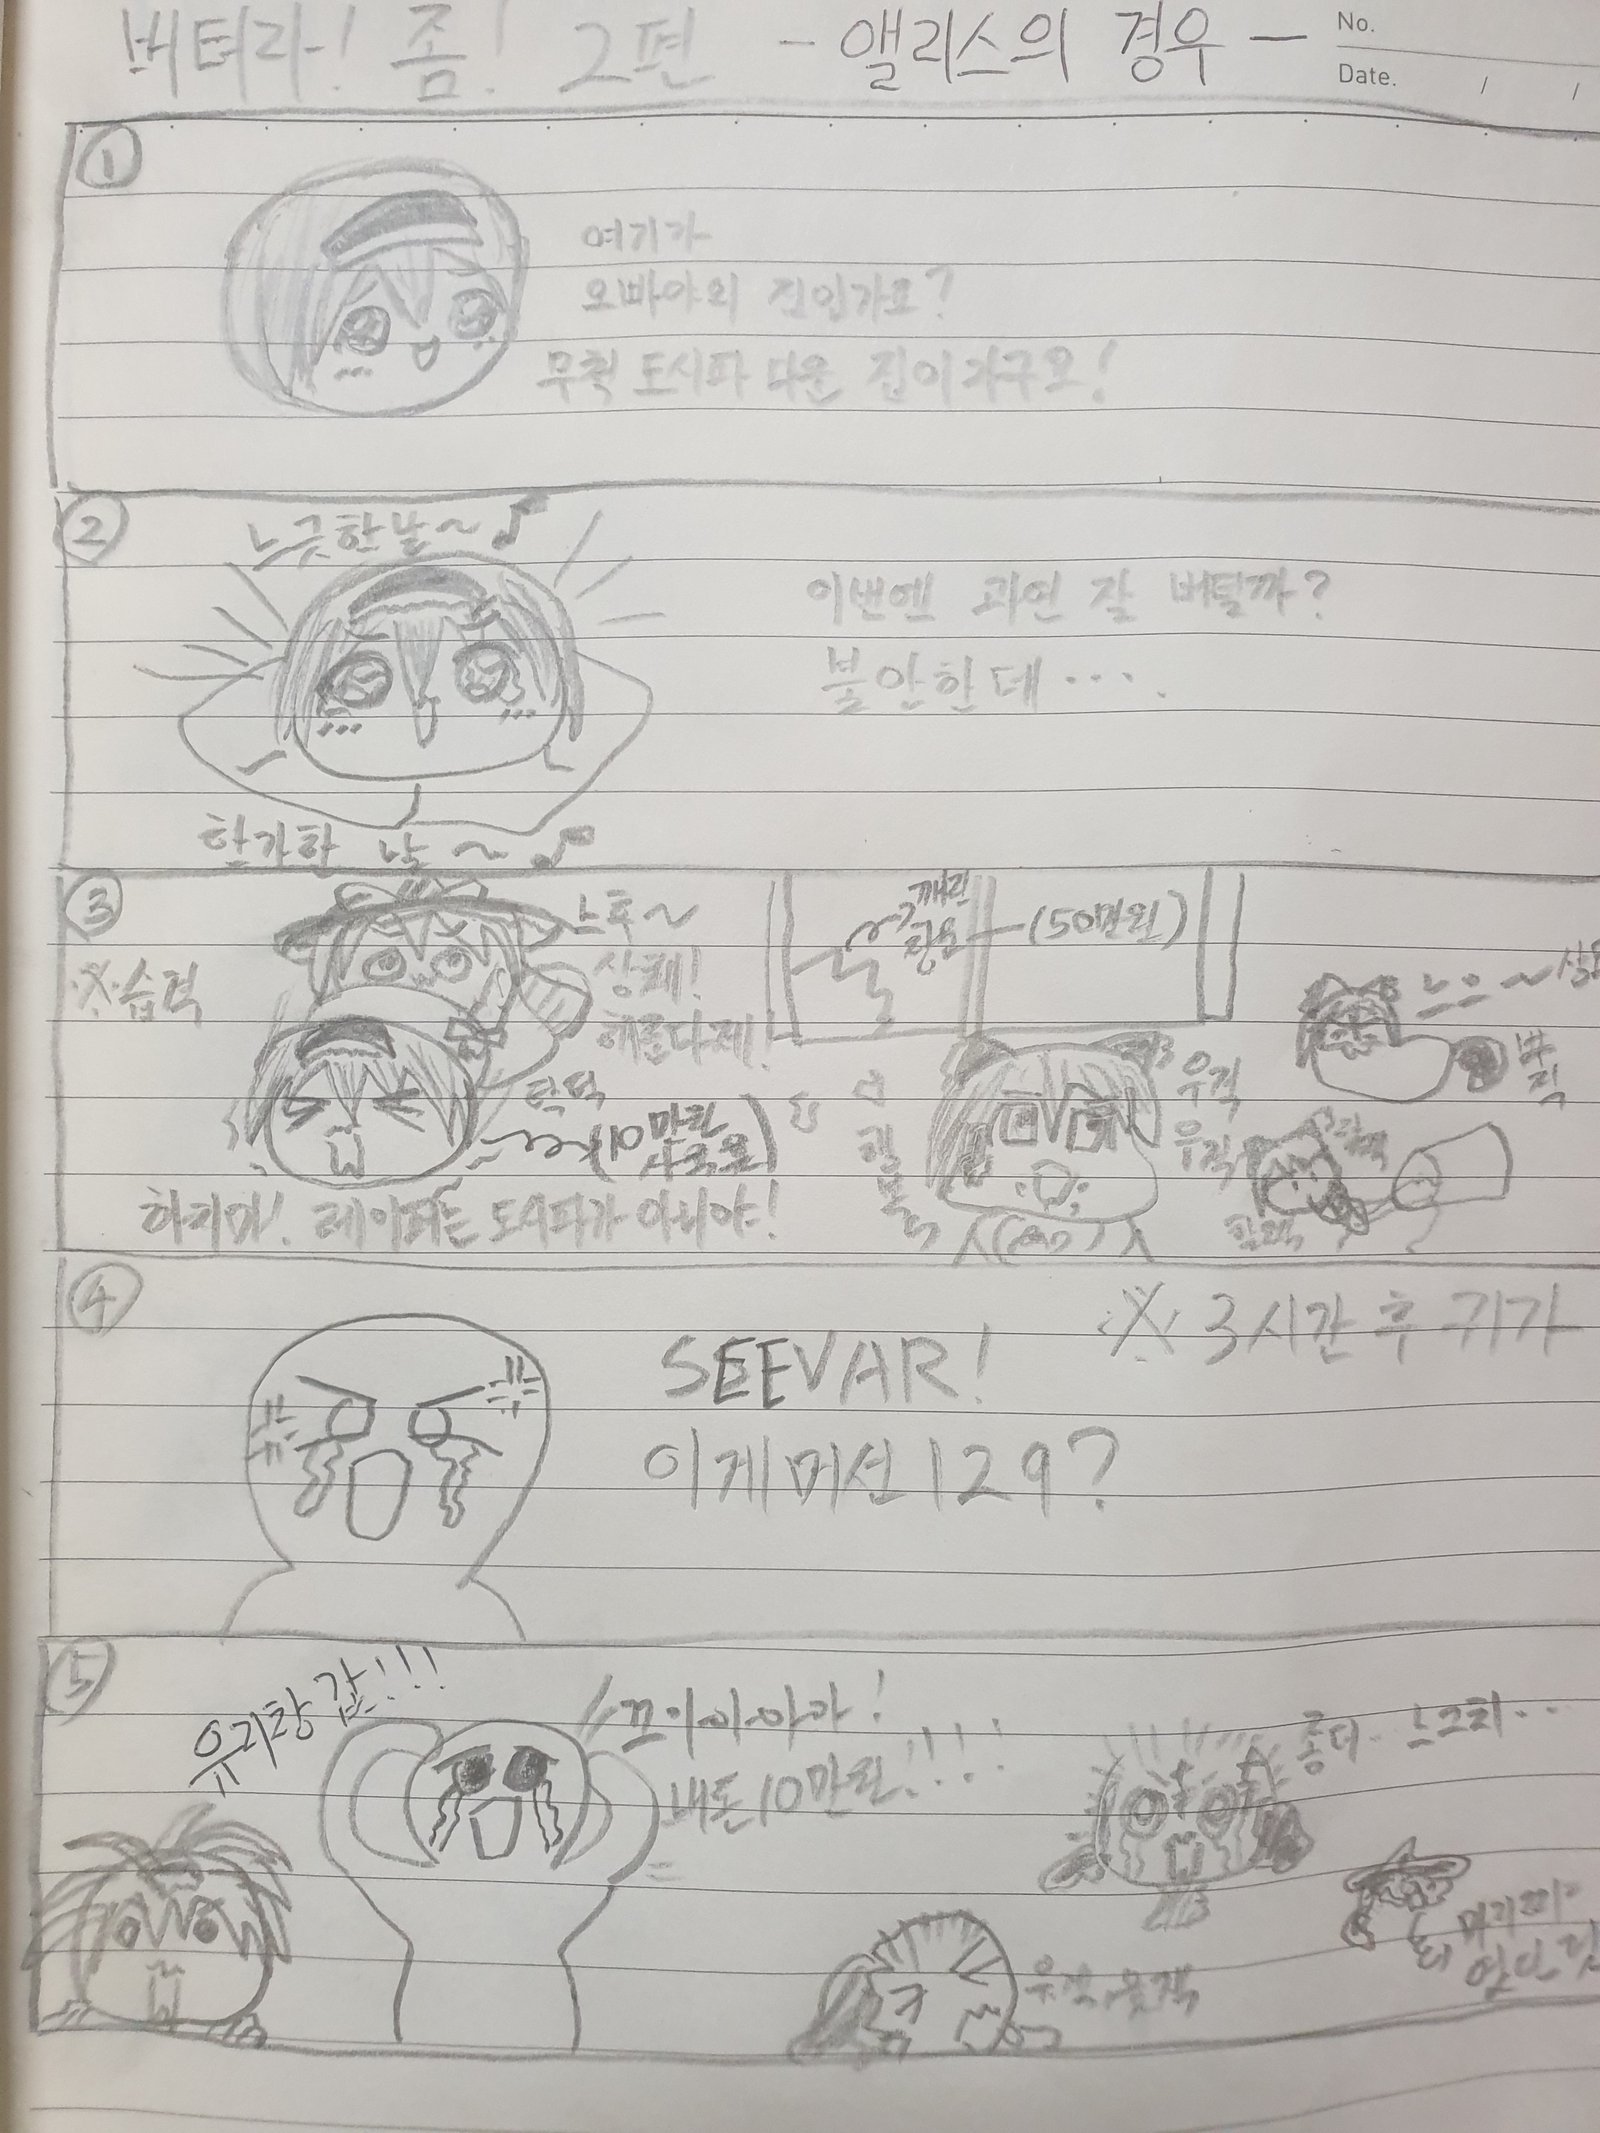 버텨라! 좀! 2편 - 앨리스의 경우 -
No.
Date. / /
①
여기가
오빠야의 집인가요?
무척 도시파 다운 집이가구요!
②
느긋한 날~♪
이번엔 과연 잘 버틸까?
불안한데····.
한가한 날~♪
③
※습격
느후~
상쾌!
해졌다제!
턱턱
(10만원
하지마! 레이퍼는 도시파가 아니야!
깨진
창문
(50만원)
우걱
우걱
느으~
뿌직
할짝
④
※ 3시간 후 귀가
SEEVAR!
이게머선129?
⑤
유리창 값!!!
끄이이아아!
내돈10만원!!!!
좀더 느그치..
우걱, 우걱